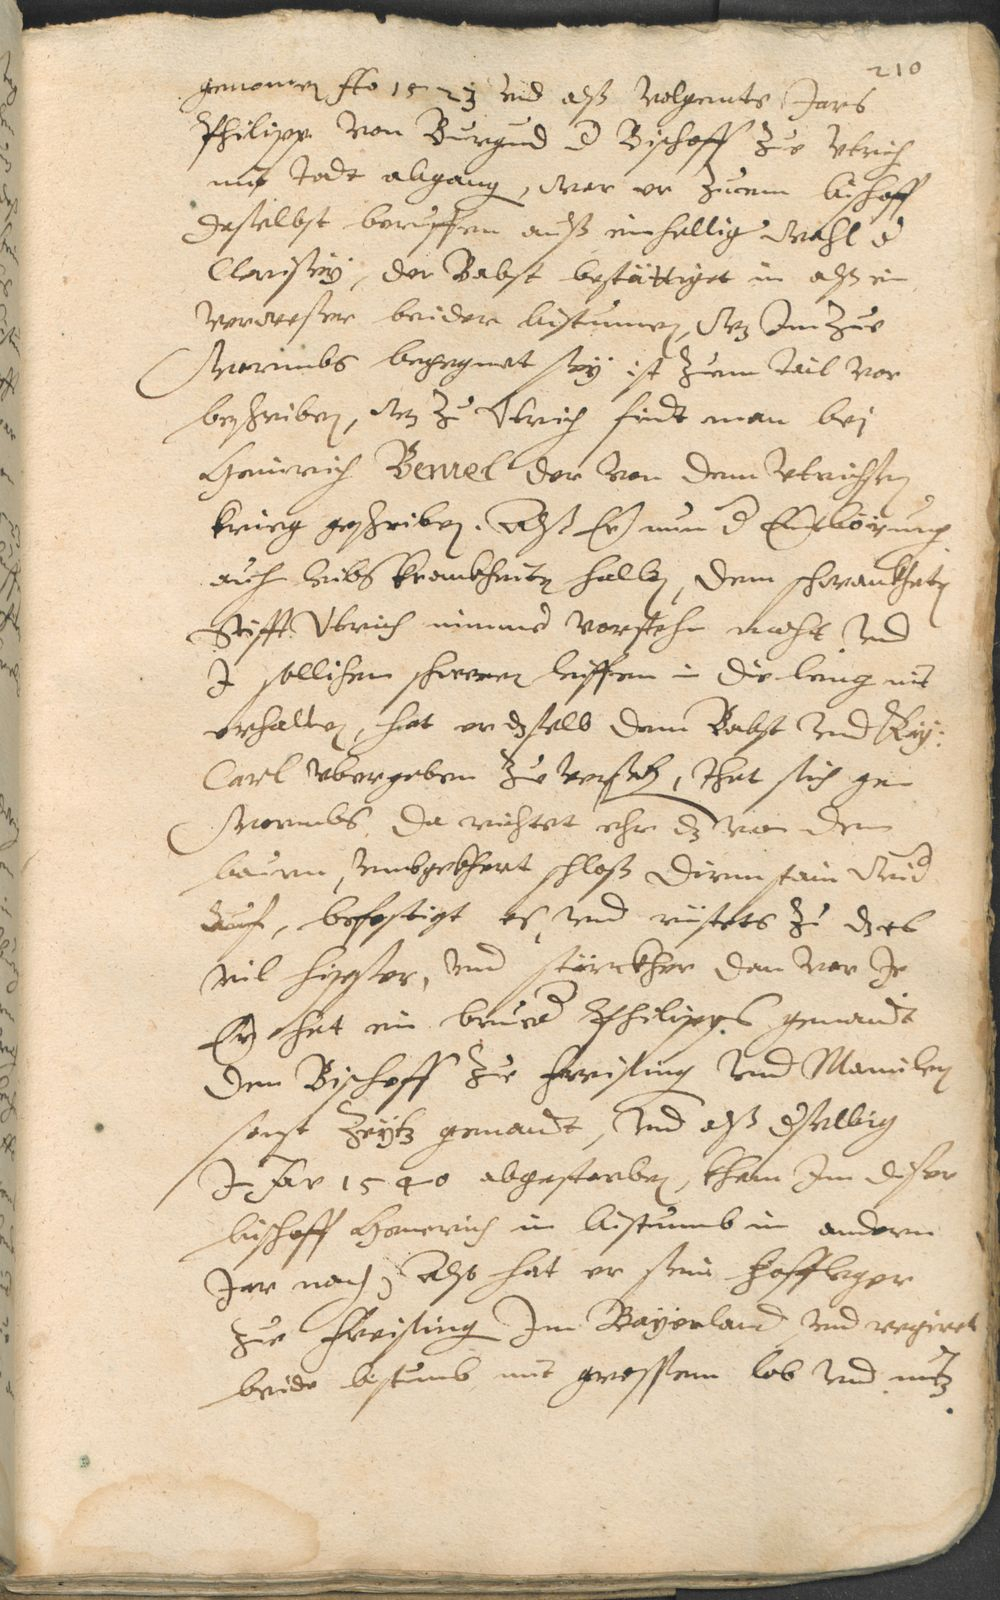 210
genomen Ao 1523 vnd alß volgents Jars
Philipp von Burgund d Bischoff zue Vtrich
mit todt abgang, war er zuem bischoff
daselbst beruffen auß einhellig wahl d
Clerisey, der Babst bestättiget in alß ein
verweser beider bistumen, Wz Im zue
Wormbs begegnet sey ist zuem tail vor
beschriben, Wz zu Vtrich findt man bei
Heinrich Bemel der von dem Vtrichsen
krieg geschriben. Alß Er nun d Empörung
auch leibs krankheiten halben, dem schwankhaten
Stifft Vtrich nimmer vorstehn mocht vnd
In sollichen schweren leiffen in die leng nit
erhalten, hat er dselb dem Babst vnd Kay:
Carl vbergeben zue, thet sich gen
Wormbs, da richtet ehr dz von den
bauren, vmbgekhert schloß Dirmstain wid
auf, befestigt es, vnd rüstets zu dz es
vil hipscher, vnd stärckher dan vor Je
Er het ein brued Philipps genandt
den Bischoff zue Freising vnd
sonst Zeytz genandt, vnd alß dselbig
Im Jar 1540 abgestorben, kham Im diser
bischoff Heinrich im bistumb im andern
Jar nach, Also hat er sein hofleger
zue Freising Im Bayerland vnd regiret
beide bistumb mit grossem lob vnd nutz.